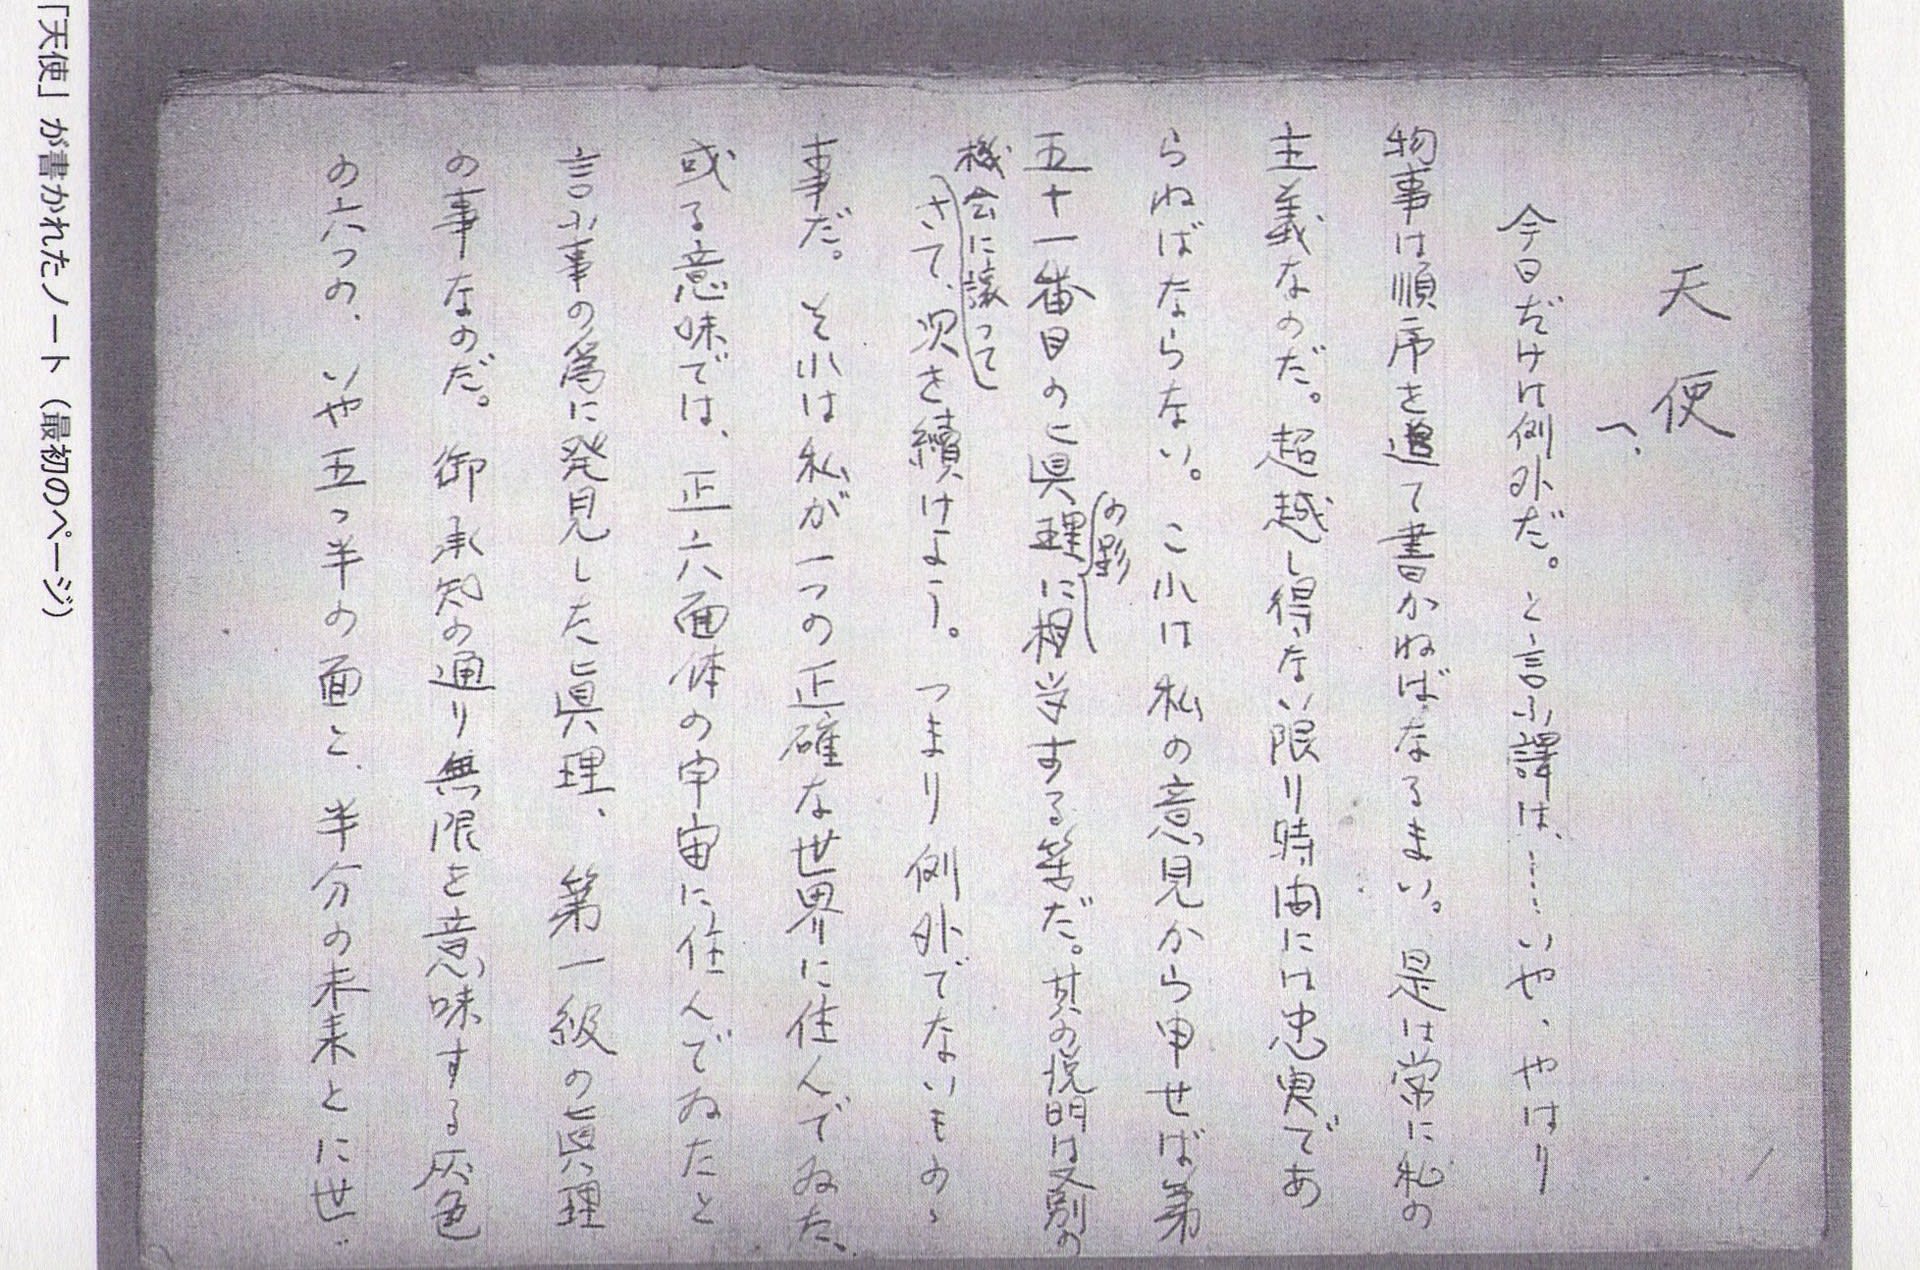 天使
一、
今日だけは例外だ。と言ふ譯は、……いや、やはり
物事は順序を追て書かねばなるまい。是は常に私の
主義なのだ。超越し得ない限り時間には忠実であ
らねばならない。これは私の意見から申せば第
五十一番目のこ眞理に相当する筈だ。其の説明は又別の
の影
機会に譲って
さて、次を續けよう。つまり例外でないものゝ
事だ。それは私が一つの正確な世界に住んでゐた、
或る意味では、正六面体の宇宙に住んでゐたと
言ふ事の為に発見した眞理、第一級の眞理
の事なのだ。御承知の通り無限を意味する灰色
の六つの、いや五つ半の面と、半分の未来とに世
「天使」が書かれたノート（最初のページ）